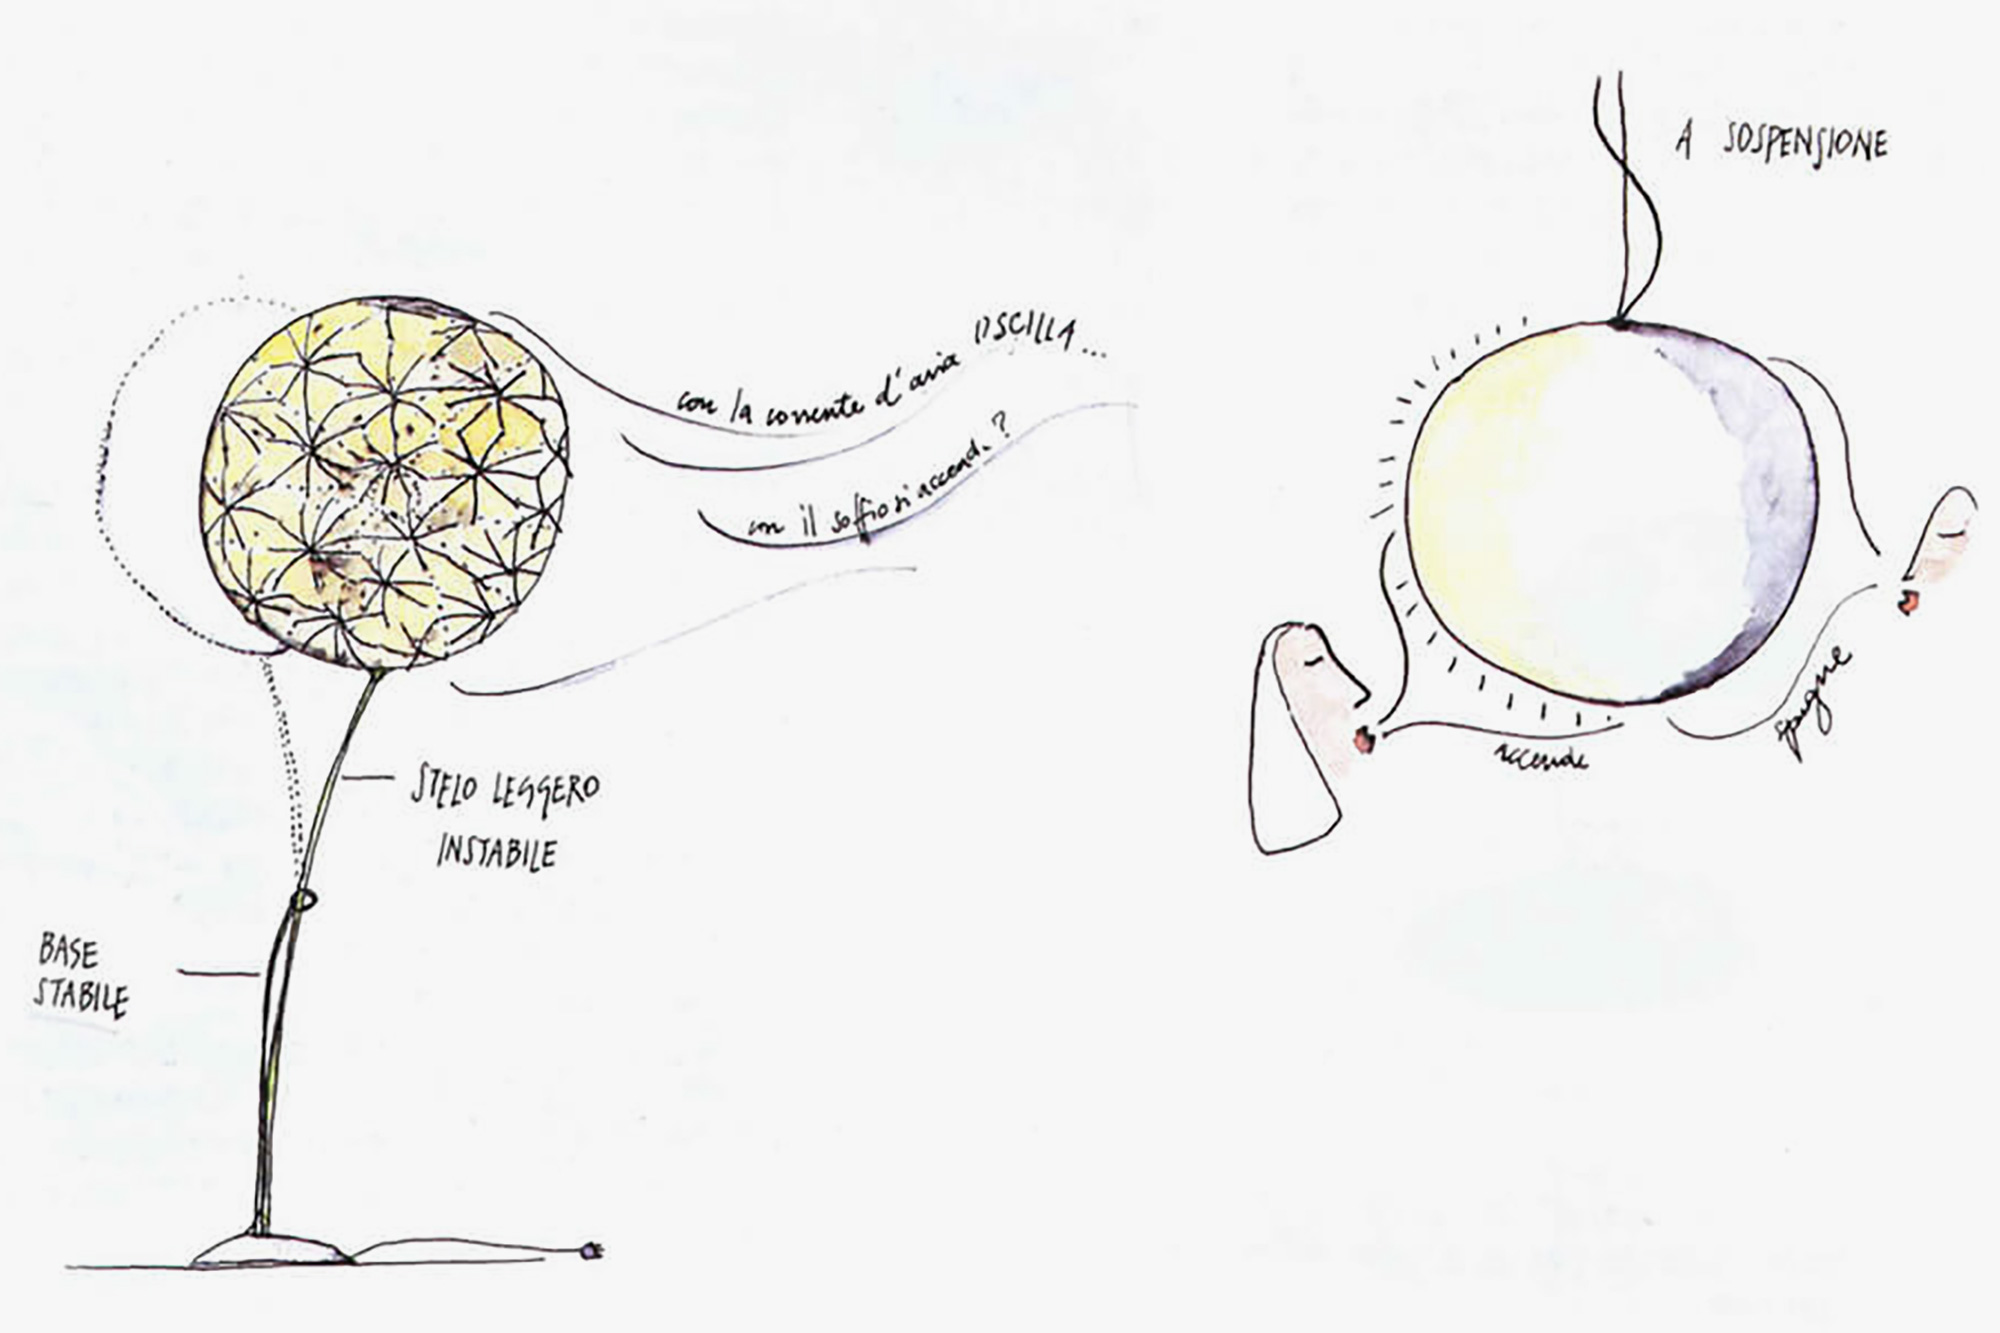 A SOSPENSIONE
con la corrente d'aria OSCILLA...
con il soffio si accende?
STELO LEGGERO
INSTABILE
BASE
STABILE
accende
spegne